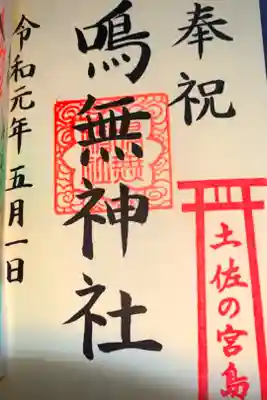 奉祝
鳴無神社
土佐の宮島
令和元年五月一日